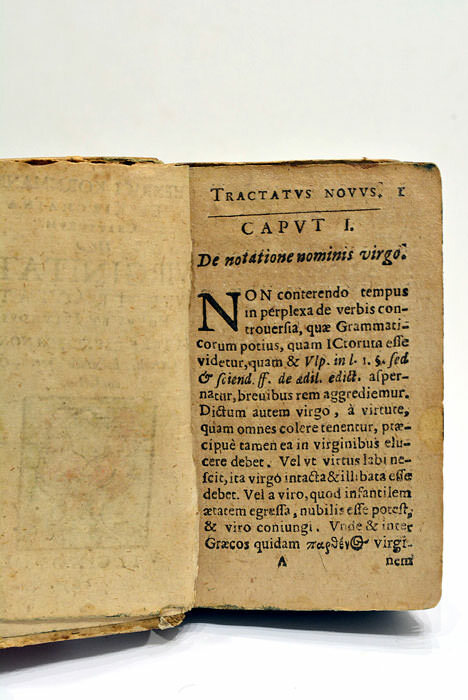 TRACTATVS NOVVS. 1
CAPVT I.
De notatione nominis virgo.
NON conterendo tempus
in perplexa de verbis con-
trouersia, quæ Grammati-
corum potius, quam ICtorum esse
videtur, quam & Vlp. in l. 1. §. sed
& sciend. ff. de ædil. edict. asper-
natur, breuibus rem aggrediemur.
Dictum autem virgo, à virtute,
quam omnes colere tenentur, præ-
cipuè tamen ea in virginibus elu-
cere debet. Vel vt virtus labi ne-
scit, ita virgo intacta & illibata esse
debet. Vel a viro, quod infantilem
ætatem egressa, nubilis esse potest,
& viro coniungi. Vnde & inter
Græcos quidam παρθένος virgi-
A nem